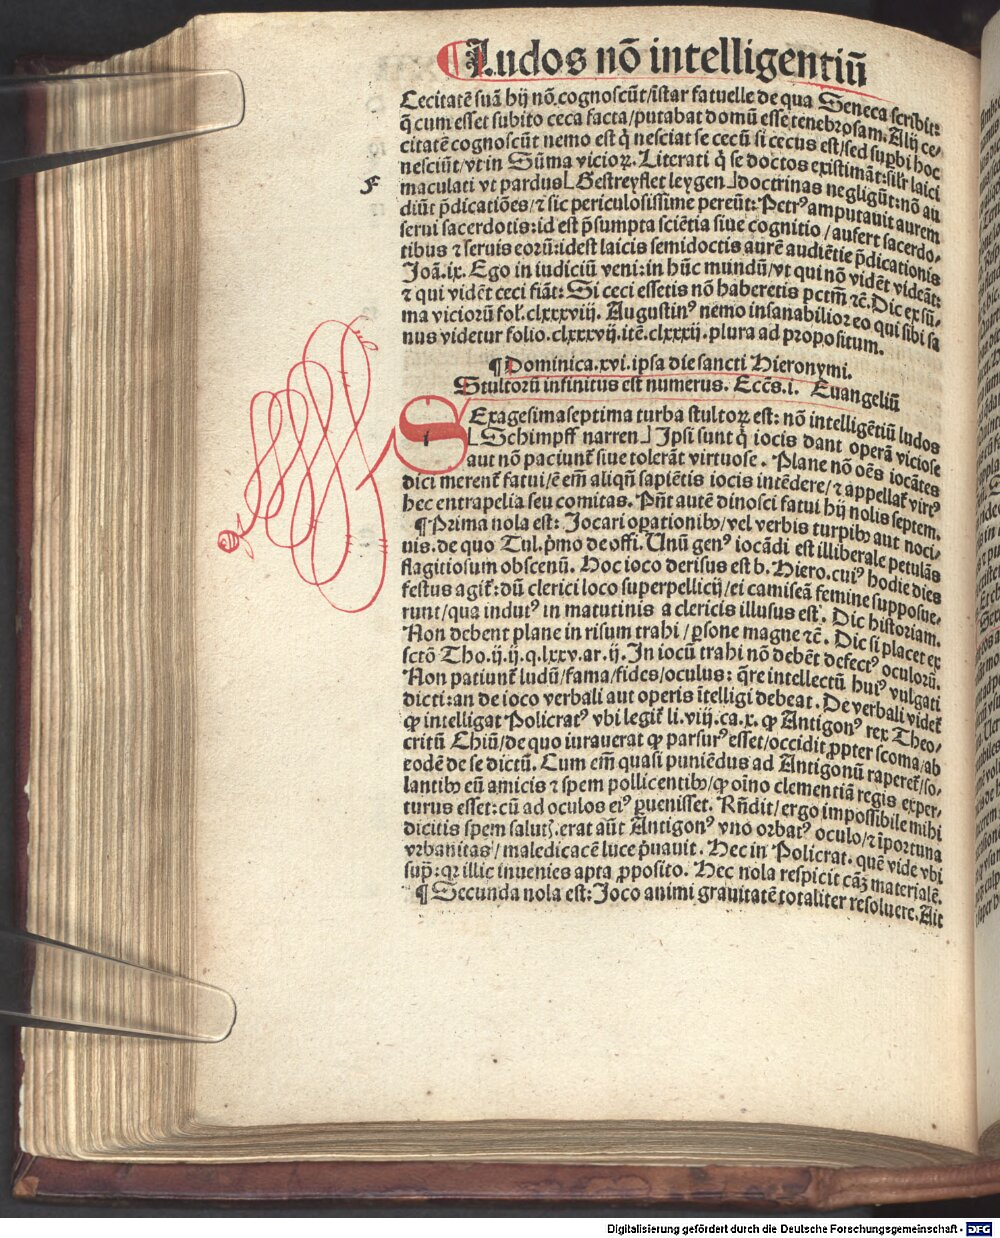 Ludos nō intelligentiū
Cecitatē suā hij nō cognoscūt/īstar fatuelle de qua Seneca scribit:
q̄ cum esset subito ceca facta/putabat domū esse tenebrosam. Alij ce-
citatē cognoscūt nemo est q̇ nesciat se cecū si cecus est/sed suꝑbi hoc
nesciūt/vt in Sūma vicioꝝ. Literati q̇ se doctos existimāt: silr̄ laici
F maculati vt pardus ⌊Gestreyflet leygen⌋ doctrinas negligūt: nō au
diūt p̄dicatiōes/⁊ sic periculosissime pereūt: Petrꝰ amputauit aurem
serui sacerdotis: id est p̄sumpta sciētia siue cognitio/aufert sacerdo-
tibus ⁊ seruis eorū: idest laicis semidoctis aurē audiētie p̄dicationis
Joā.ix. Ego in iudiciū veni: in hūc mundū/vt qui nō vidēt videāt:
⁊ qui vidēt ceci fiāt: Si ceci essetis nō haberetis pctm̄ ⁊c̄. Dic ex sū-
ma viciorū fol̄. clxxxviij. Augustinꝰ nemo insanabilior eo qui sibi sa
nus videtur folio. clxxxvij. itē. clxxxij. plura ad propositum.
¶ Dominica.xvi. ipsa die sancti Hieronymi.
Stultorū infinitus est numerus. Ecc̄s.i. Euangeliū
SExagesima septima turba stultoꝝ est: nō intelligētiū ludos
i ⌊Schimpff narren⌋ Ipsi sunt q̇ iocis dant operā viciose
aut nō paciunt̄ siue tolerāt virtuose. Plane nō oēs iocātes
dici merent̄ fatui/ē em̄ aliqn̄ sapiētis iocis intēdere/⁊ appellat̄ virtꝰ
hec entrapelia seu comitas. Pn̄t autē dinosci fatui hij nolis septem.
¶ Prima nola est: Jocari oꝑationibꝫ/vel verbis turpibꝫ aut noci-
uis. de quo Tul. p̄mo de offi. Unū genꝰ iocādi est illiberale petulās
flagitiosum obscenū. Hoc ioco derisus est b. Hiero. cuiꝰ hodie dies
festus agit̄: dū clerici loco superpellicij/ei camiseā femine supposue-
runt/qua indutꝰ in matutinis a clericis illusus est. Dic historiam.
Non debent plane in risum trahi/ꝑsone magne ⁊c̄. Dic si placet ex
sctō Tho.ij.ij.q.lxxv.ar.ij. In iocū trahi nō debēt defectꝰ oculorū.
Non patiunt̄ ludū/fama/fides/oculus: q̄re intellectū huiꝰ vulgati
dicti: an de ioco verbali aut operis ītelligi debeat. De verbali videt̄
ꝙ intelligat Policratꝰ vbi legit̄ li.viij.ca.x. ꝙ Antigonꝰ rex Theo-
critū Chiū/de quo iurauerat ꝙ parsurꝰ esset/occidit ꝓpter scoma/ab
eodē de se dictū. Cum em̄ quasi puniēdus ad Antigonū raperet̄/so-
lantibꝫ eū amicis ⁊ spem pollicentibꝫ/ꝙ oīno clementiā regis exper-
turus esset: cū ad oculos eiꝰ ꝑuenisset. Rn̄dit/ergo impossibile mihi
dicitis spem salutꝭ. erat aūt Antigonꝰ vno orbatꝰ oculo/⁊ īportuna
vrbanitas/maledicacē luce p̄uauit. Hec in Policrat. quē vide vbi
sup̄: qꝛ illic inuenies apta ꝓposito. Hec nola respicit cāꝫ materialē.
¶ Secunda nola est: Joco animi grauitatē totaliter resoluere. Ait
Digitalisierung gefördert durch die Deutsche Forschungsgemeinschaft - DFG